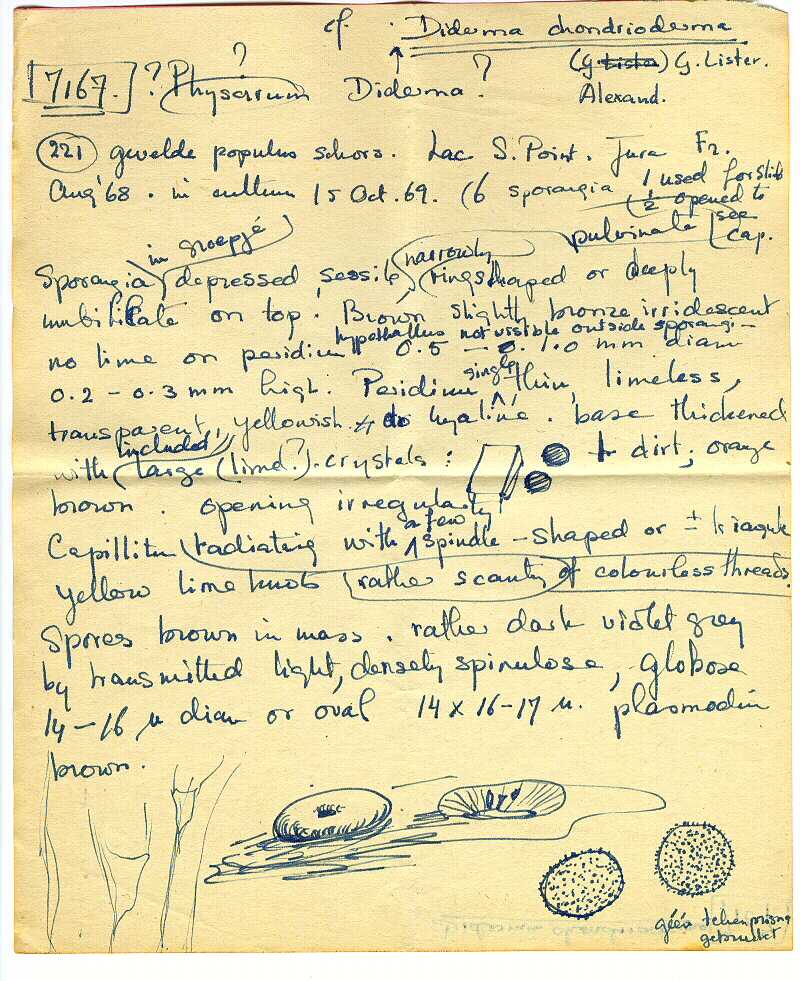 cf. Diderma chondrioderma
?
7167. ? Physarum Diderma ? (G Lister) G. Lister.
Alexand.
221 gevelde populus schors. Lac S. Point. Jura Fr.
Aug '68. in culture 15 Oct. 69. (6 sporangia 1 used for slide
1/2 opened to
see
cap.
in groepjé narrowly pulvinate
Sporangia depressed, sessile, ringshaped or deeply
umbilicate on top. Brown slightly bronze irridescent
hypothallus not visible outside sporangi-
no lime on peridium 0.5 – 1.0 mm diam
0.2 – 0.3 mm high. Peridium single thin, limeless,
transparent, yellowish to hyaline. base thickened
included
with large (lime?) crystals : + dirt; orange
brown. opening irregularly
a few
Capillitium radiating with spindle-shaped or ± triangular
yellow lime knots rather scanty of colourless threads.
Spores brown in mass. rather dark violet grey
by transmitted light, densely spinulose, globose
14–16 µ diam or oval 14 x 16–17 µ. plasmodium
brown.
géén
gebruikt